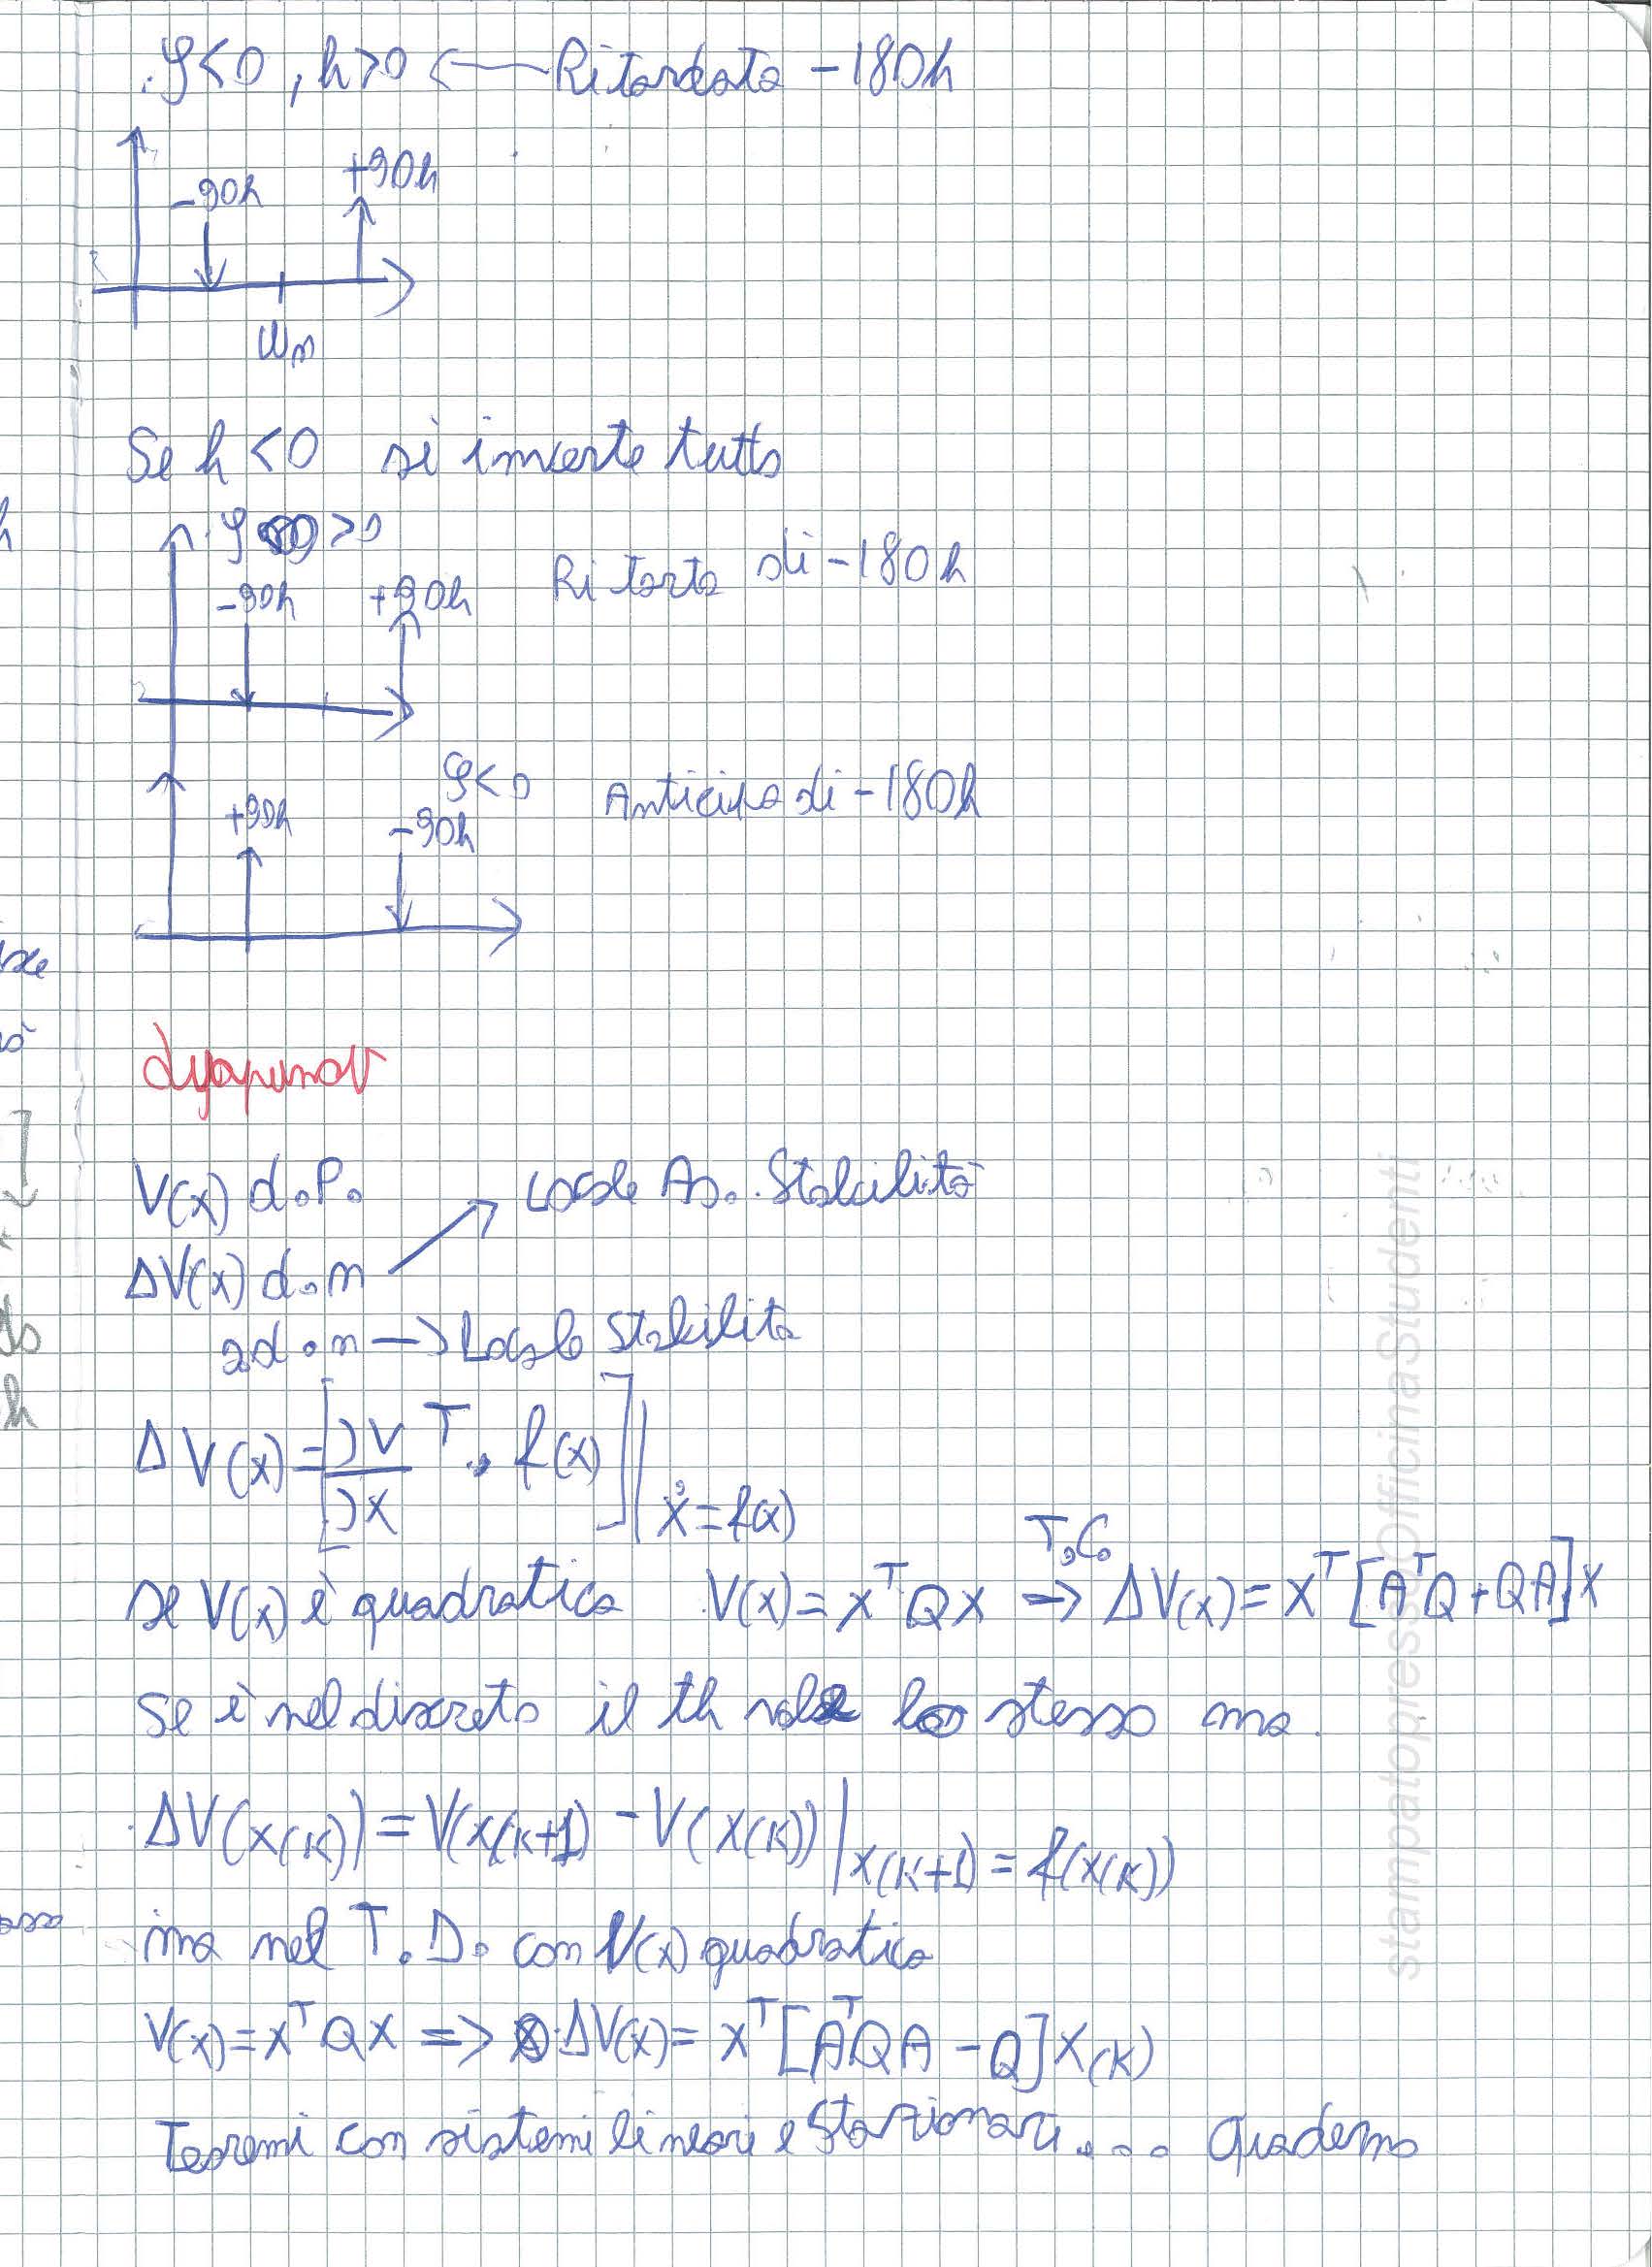 ζ<0, h>0 ← Ritardata -180h
-90h +90h
ωn
Se h<0 si inverte tutto
ζ >0
-90h +90h Ritarda di -180h
ζ<0 Anticipa di -180h
+90h -90h
Lyapunov
V(x) d.P. Locale As. Stabilità
ΔV(x) d.n
sd.n → Locale Stabilità
ΔV(x)=[∂V/∂x T . f(x)]|ẋ=f(x)
se V(x) è quadratica V(x)=xᵀQx ⇒ T.C. ΔV(x)=xᵀ[AᵀQ+QA]x
Se è nel discreto il th vale lo stesso ma.
ΔV(x(k))=V(x(k+1)-V(x(k))|x(k+1)=f(x(k))
ma nel T.D. con V(x) quadratica
V(x)=xᵀQx => ΔV(x)= xᵀ[AᵀQA-Q]x(k)
Teoremi con sistemi lineari e Stazionari... Quaderno
stampatopressoOfficinaStudenti